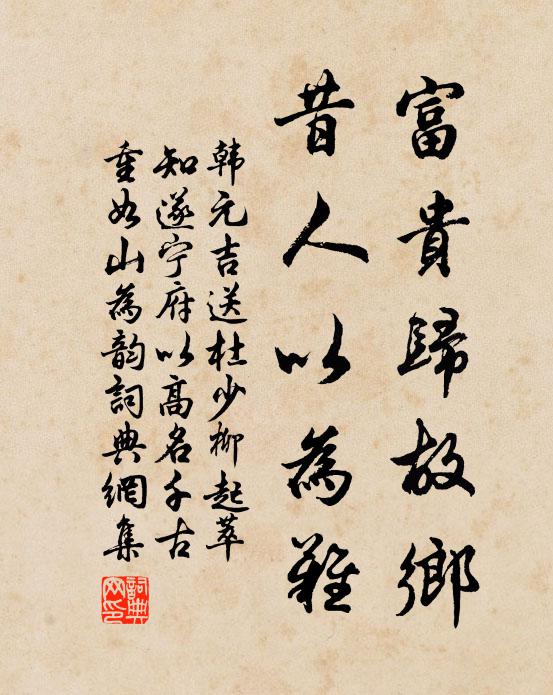 富貴歸故鄉
昔人以為難
韩元吉送杜少柳起萃
知遂宁府以高名千古
重如山為韵詞典網集
詞典网印